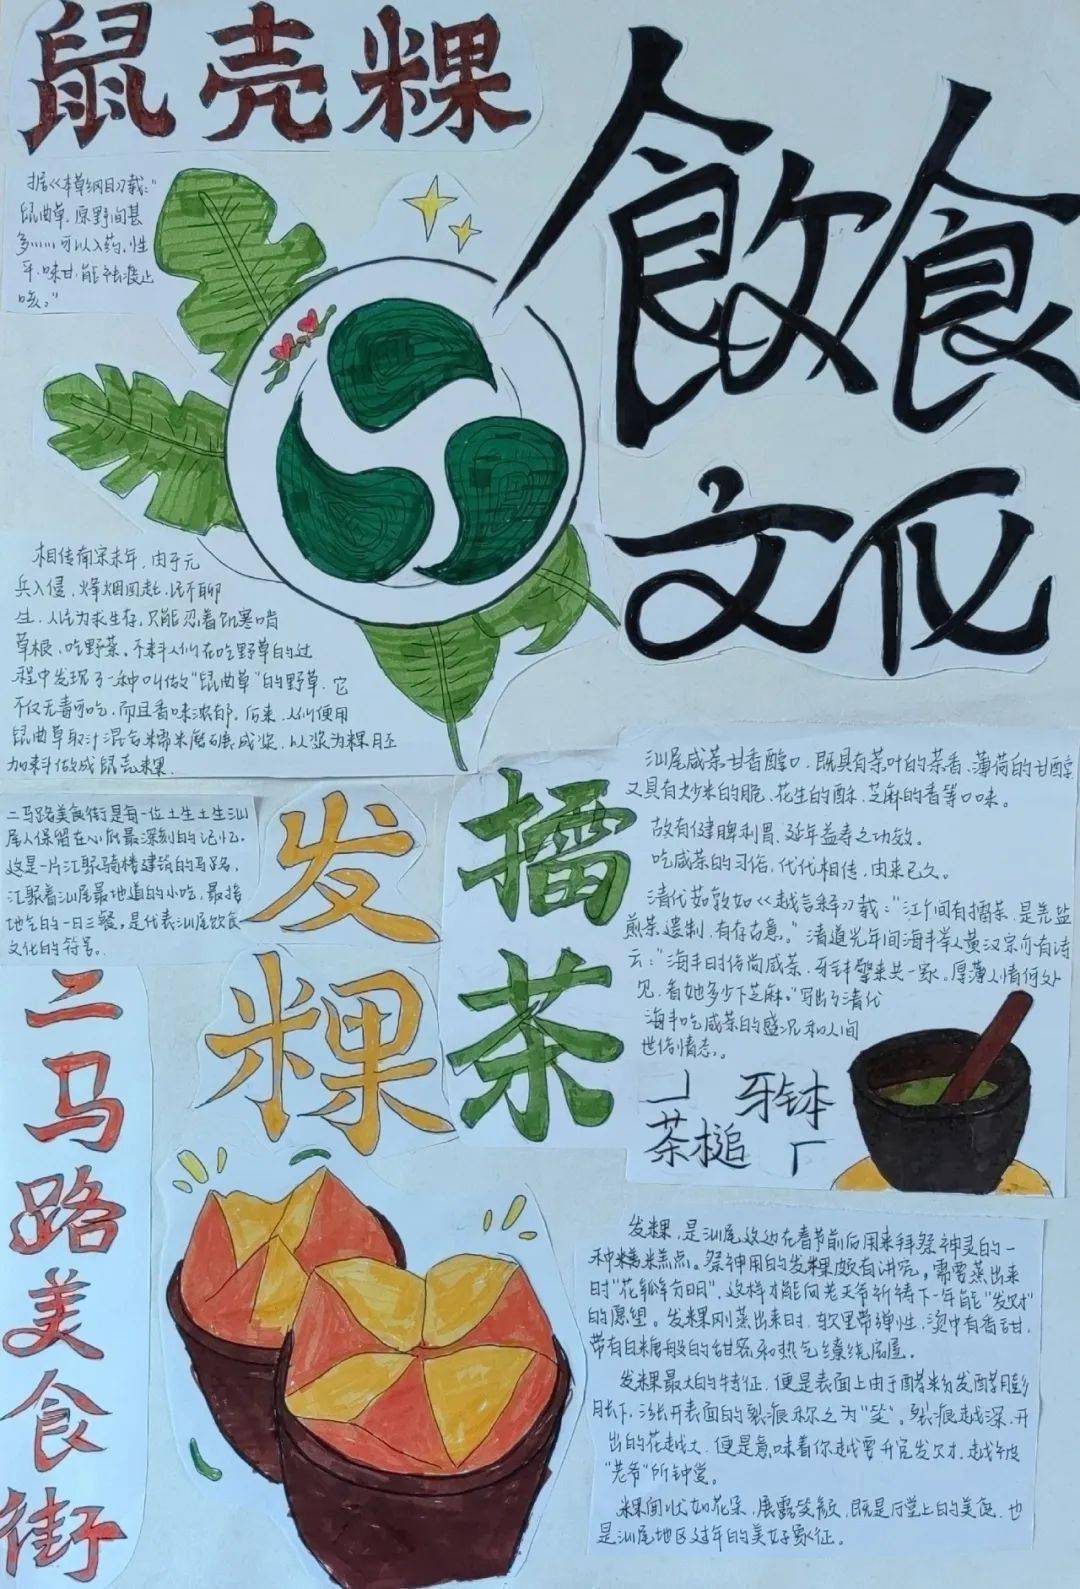 鼠壳粿
飲食
文化
据《本草纲目》载:"
鼠曲草,原野间甚
多……可以入药,性
平,味甘,能祛痰止
咳。"
相传南宋末年,由于元
兵入侵,烽烟四起,民不聊
生,人们为求生存,只能忍着饥寒啃
草根、吃野菜。不料人们在吃野草的过
程中发现了一种叫做"鼠曲草"的野草,它
不仅无毒可吃,而且香味浓郁。后来,人们便用
鼠曲草取汁混合糯米磨碾成浆,以浆为粿胚
加料做成鼠壳粿.
二马路美食街是每一位土生土生汕
尾人保留在心底最深刻的记忆.
这是一片汇聚骑楼建筑的马路,
汇聚着汕尾最地道的小吃,最接
地气的一日三餐,是代表汕尾饮食
文化的符号.
二马路美食街
发粿
擂茶
汕尾咸茶甘香醇口,既具有茶叶的茶香、薄荷的甘醇
又具有炒米的脆、花生的酥、芝麻的香等口味。
故有健脾利胃、延年益寿之功效。
吃咸茶的习俗,代代相传,由来已久。
清代茹敦如《越言释》载:"江间有擂茶,是先盐
煎茶遗制,有存古意。"清道光年间海丰举人黄汉宗亦有诗
云:"海丰时俗尚咸茶,牙钵擎来共一家。厚薄人情何处
见,看她多少下芝麻。"写出了清代
海丰吃咸茶的盛况和人间
世俗情态。
牙钵
茶槌
发粿,是汕尾这边在春节前后用来拜祭神灵的一
种糯米糕点。祭神用的发粿颇有讲究,需要蒸出来
时"花瓣分明",这样才能向老天爷祈祷下一年能"发财"
的愿望。发粿刚蒸出来时,软里带弹性,烫中有香甜,
带有白糖般的甜密和热气缭绕房屋。
发粿最大的特征,便是表面上由于酵粉发酵膨
胀下,涨开表面的裂痕称之为"笑"。裂痕越深,开
出的花越大,便是意味着你越要升官发财,越被
"老爷"所钟爱。
粿面状如花朵,展露笑颜,既是厅堂上的美食,也
是汕尾地区过年的美好象征。